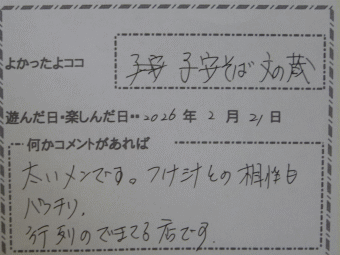 よかったよココ 子安そば 文の蔵
遊んだ日・楽しんだ日・・2026年 2月 21日
何かコメントがあれば
太いメンです。つけ汁との相性も
バッチリ。
行列のできてる店です。